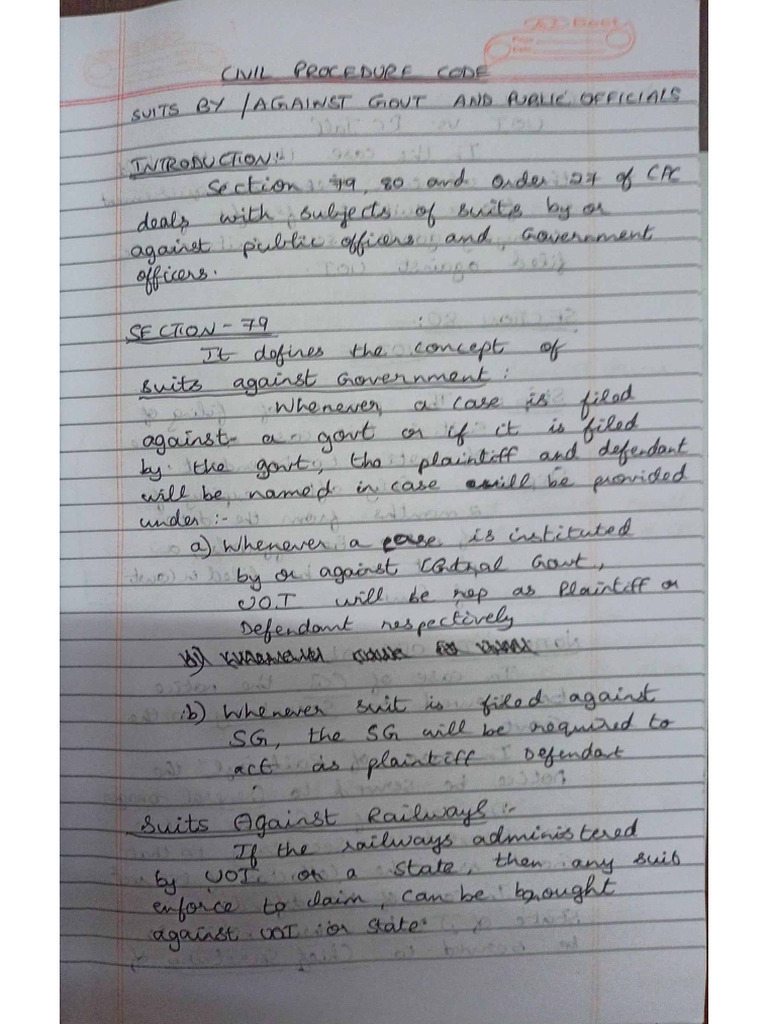 CIVIL PROCEDURE CODE
SUITS BY /AGAINST GOVT AND PUBLIC OFFICIALS
INTRODUCTION:
Section 79, 80 and order 27 of CPC
deals with subjects of suits by or
against public officers and Government
officers.
SECTION - 79
It defines the concept of
suits against Government:
Whenever a case is filed
against a govt or if it is filed
by the govt, the plaintiff and defendant
will be named in case will be provided
under :-
a) Whenever a case is instituted
by or against Central Govt,
U.O.I will be rep as Plaintiff or
Defendant respectively
b) Whenever suit is filed against
SG, the SG will be required to
act as plaintiff Defendant
Suits Against Railways :-
If the railways administered
by UOI or a State, then any suit
enforce to claim, can be brought
against UOI or State.